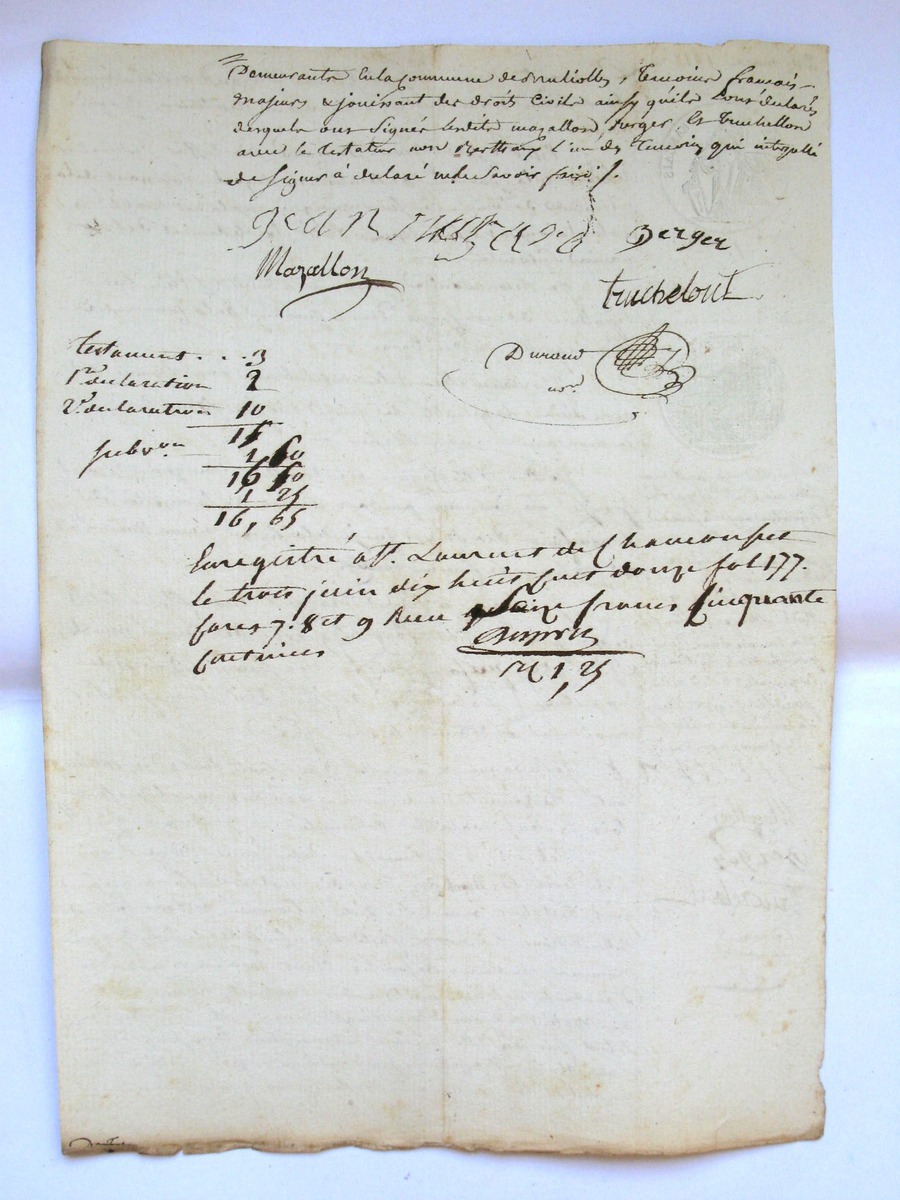 Demeurants En la Commune de , Temoins français
majeurs & jouissant des droits Civils ainsy qu'ils l'ont declarés
desquels ont Signés lesdits mazallon, Berger, et Truchellon
avec le testateur non l'un des Temoins qui interpellé
de Signer à declaré ne le Savoir faire /.
jean Berger
Mazallon
truchelout
Durand
not.re
testament . . . 3
1re declaration 2
2e declaration 10
15
Subv.on 1 50
16 50
1 25
16, 65
Enregistré a St. Laurent de Chamousset
le trois juin dix huit cent douze fol 177.
cases 7. 8 et 9 Recu Seize francs Cinquante
Centimes
1, 25